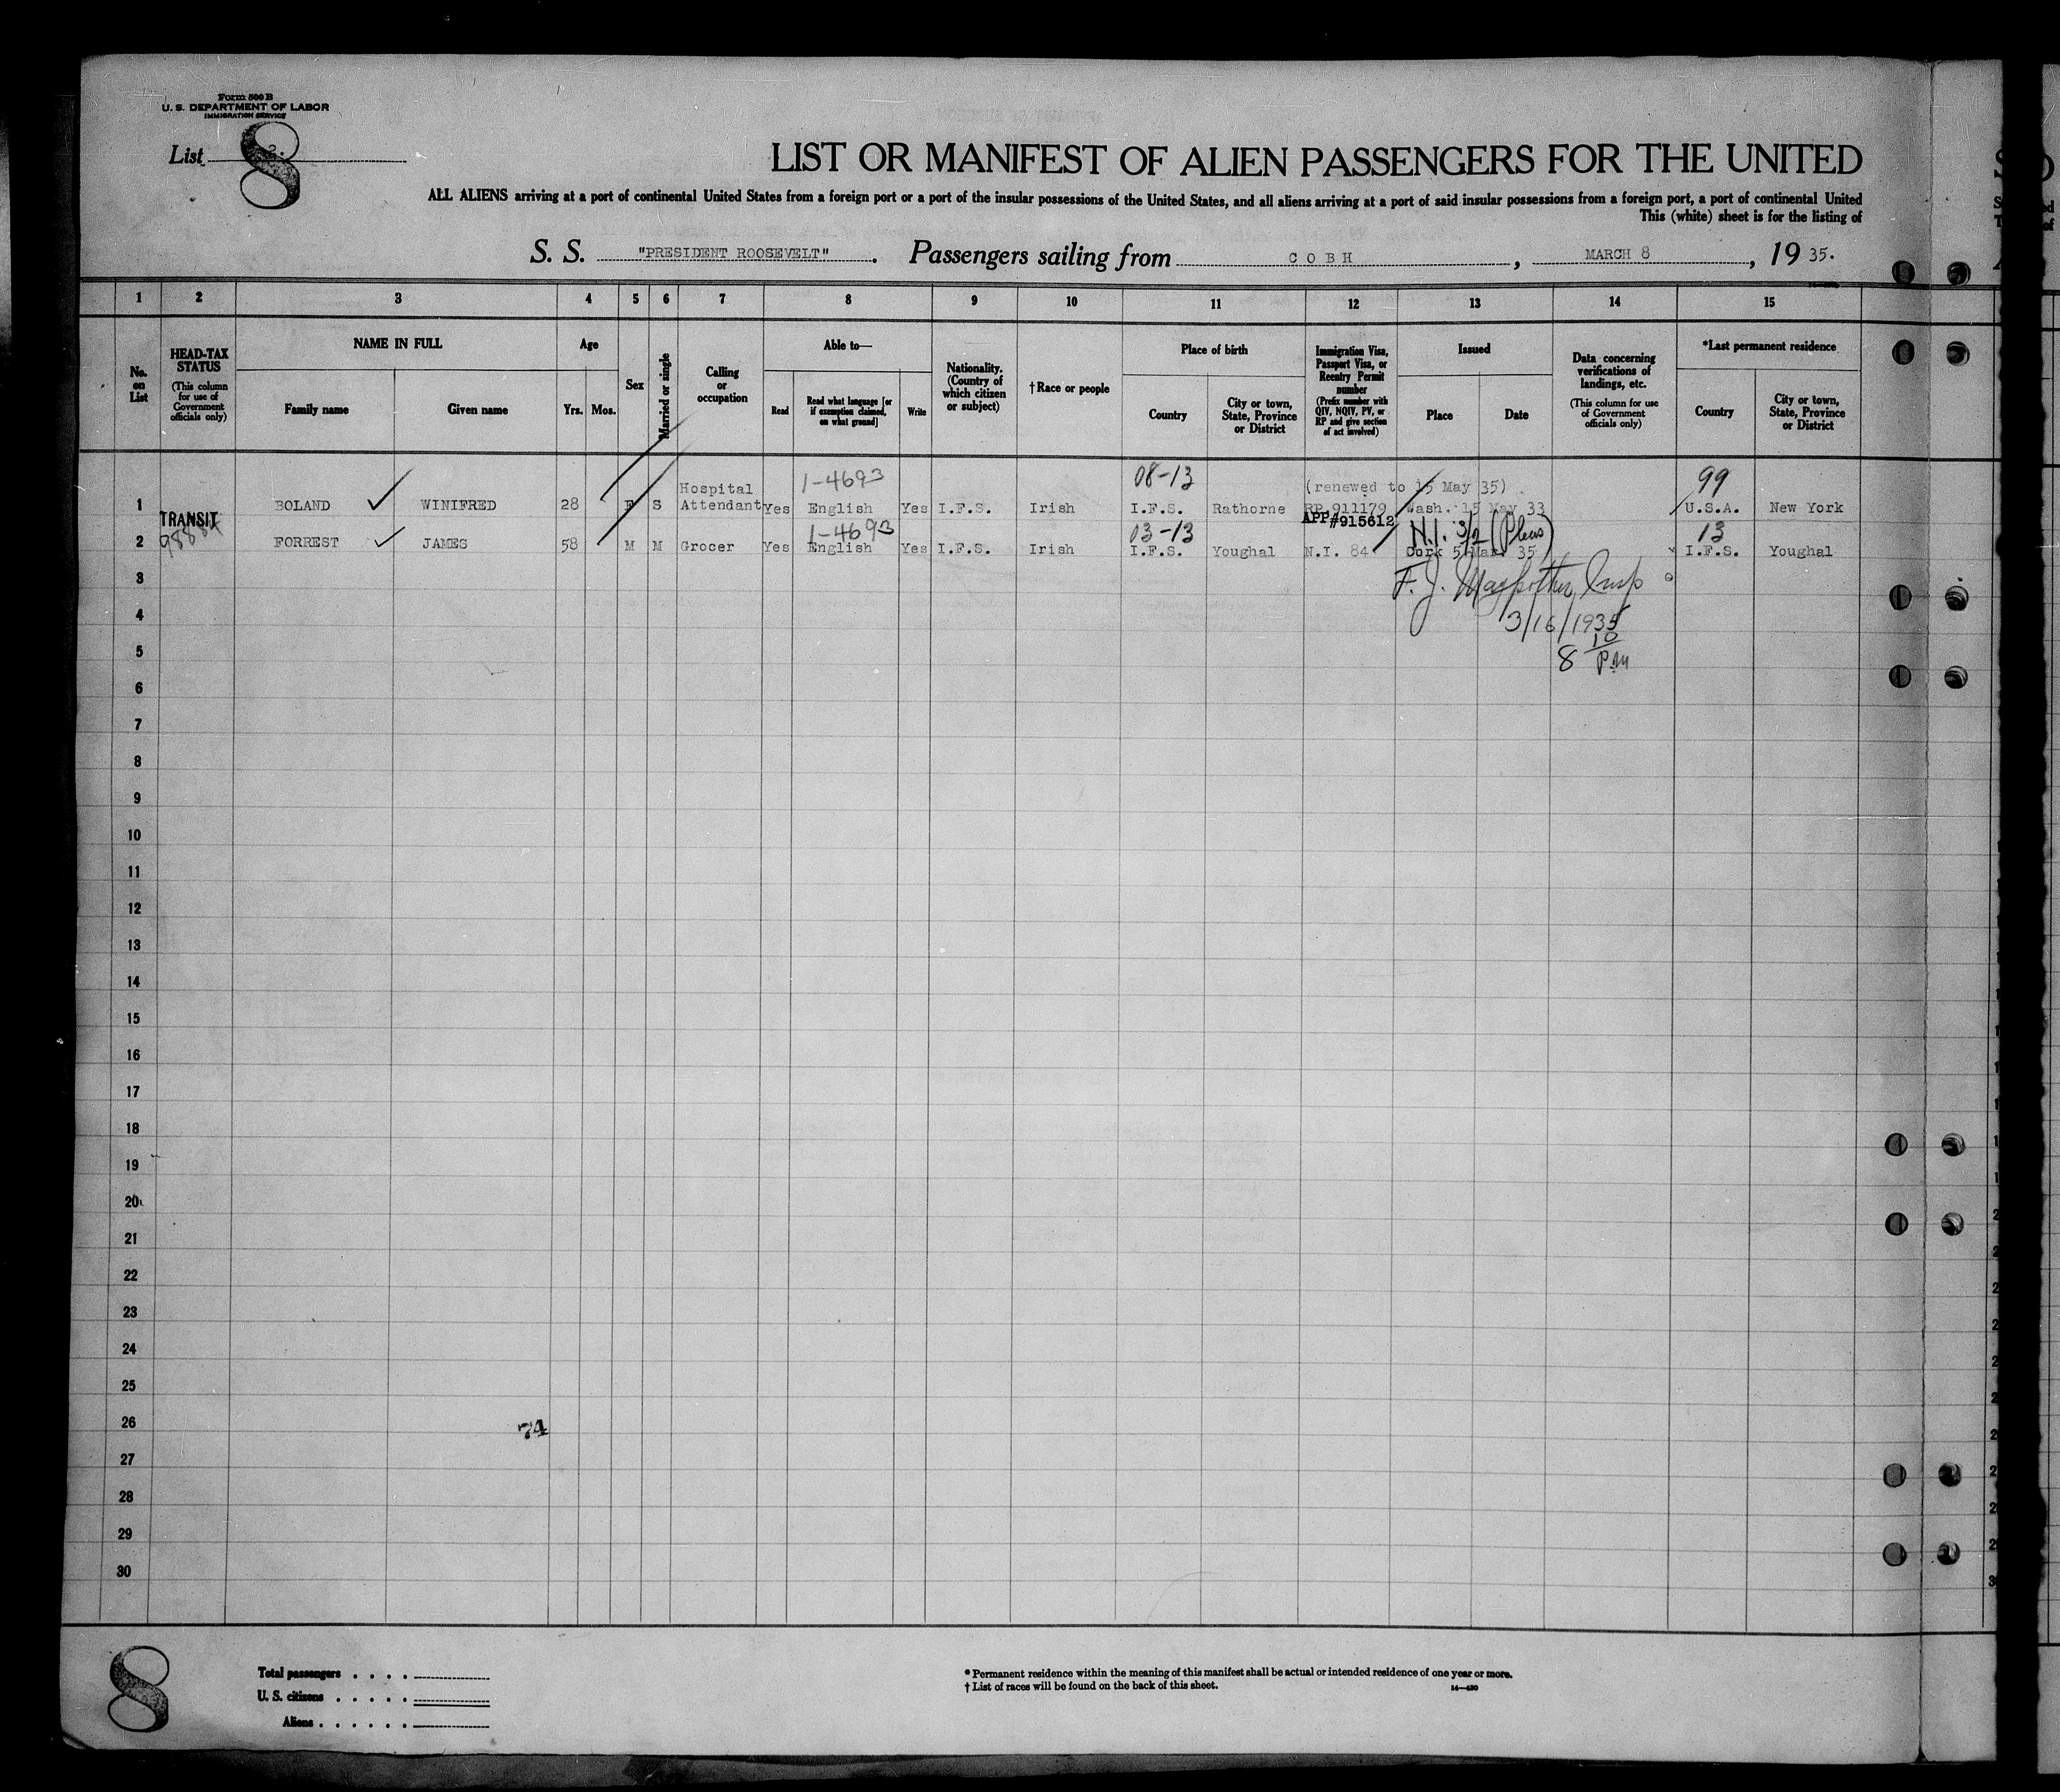 Form 500 B
U. S. DEPARTMENT OF LABOR
IMMIGRATION SERVICE
List 2.
8
LIST OR MANIFEST OF ALIEN PASSENGERS FOR THE UNITED
ALL ALIENS arriving at a port of continental United States from a foreign port or a port of the insular possessions of the United States, and all aliens arriving at a port of said insular possessions from a foreign port, a port of continental United
This (white) sheet is for the listing of
S. S. "PRESIDENT ROOSEVELT". Passengers sailing from COBH, MARCH 8, 1935.
1 2 3 4 5 6 7 8 9 10 11 12 13 14 15
No. on List
HEAD-TAX STATUS
(This column for use of Government officials only)
NAME IN FULL
Family name
Given name
Age
Yrs. Mos.
Sex
Married or single
Calling or occupation
Able to—
Read
Read what language [or if exemption claimed, on what ground]
Write
Nationality. (Country of which citizen or subject)
† Race or people
Place of birth
Country
City or town, State, Province or District
Immigration Visa, Passport Visa, or Reentry Permit number
(Prefix number with QIV, NQIV, PV, or RP and give section of act involved)
Issued
Place
Date
Data concerning verifications of landings, etc.
(This column for use of Government officials only)
*Last permanent residence
Country
City or town, State, Province or District
1-4693 08-13 (renewed to 15 May 35) 99
1 BOLAND WINIFRED 28 F S Hospital Attendant Yes English Yes I.F.S. Irish I.F.S. Rathorne RP 911179 Wash. 15 May 33 U.S.A. New York
TRANSIT APP#915612
1-4693 03-13 N.I. 3/2 13
2 FORREST JAMES 58 M M Grocer Yes English Yes I.F.S. Irish I.F.S. Youghal N.I. 84 Cork 5 Mar 35 I.F.S. Youghal
F. J. Insp
3/16/1935
8 10 P.M
3
4
5
6
7
8
9
10
11
12
13
14
15
16
17
18
19
20
21
22
23
24
25
26
27
28
29
30
74
8
Total passengers . . . .
U. S. citizens . . . . .
Aliens . . . . . .
* Permanent residence within the meaning of this manifest shall be actual or intended residence of one year or more.
† List of races will be found on the back of this sheet.
14—430